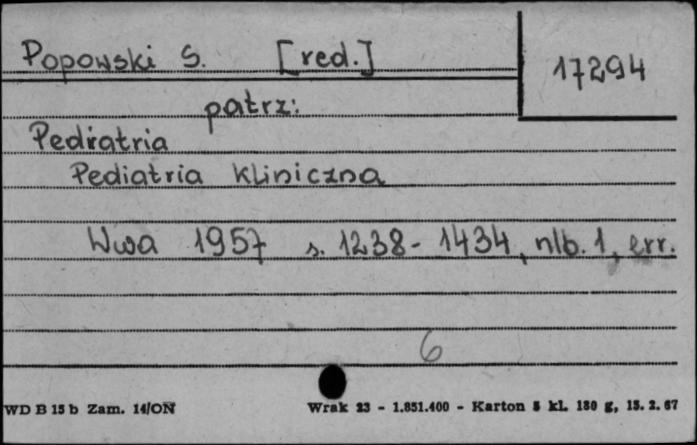 Popowski S. [red.]
17294
patrz:
Pediatria
Pediatria kliniczna
Wwa 1957 s. 1238-1434, nlb. 1, err.
6
WD B 15 b Zam. 14/ON
Wrak 23 - 1.851.400 - Karton 5 kl. 180 g, 15. 2. 67